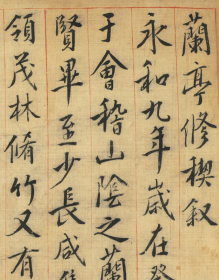 蘭亭修禊叙
永和九年歲在癸
于會稽山陰之蘭
賢畢至少長咸
領茂林脩竹又有